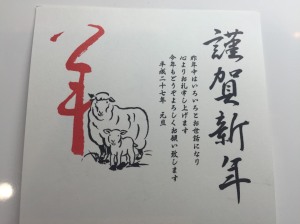 謹賀新年
昨年中はいろいろとお世話になり
心よりお礼申し上げます
今年もどうぞよろしくお願い致します
平成二十七年 元旦
羊